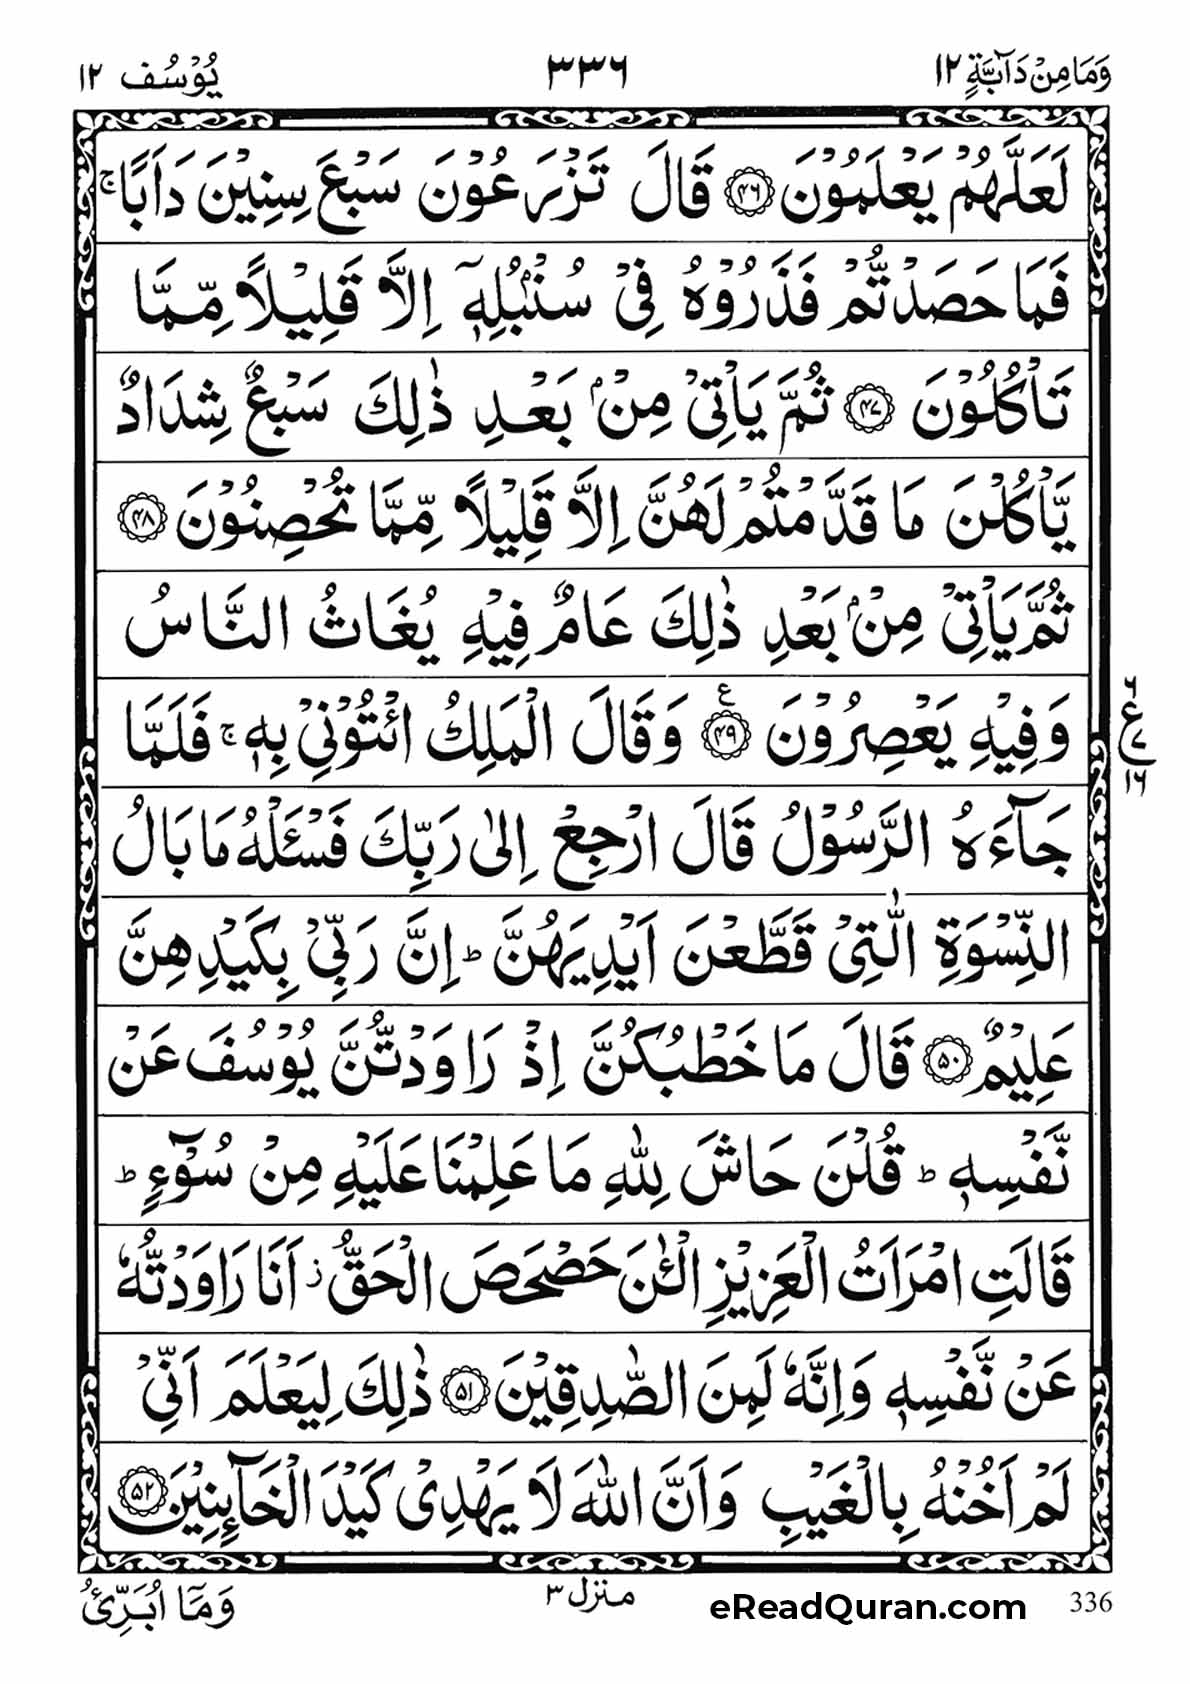 وَمَا مِنْ دَآبَّةٍ ١٢ ٣٣٦ يُوْسُف ١٢
لَعَلَّهُمْ يَعْلَمُوْنَ ﴿۴۶﴾ قَالَ تَزْرَعُوْنَ سَبْعَ سِنِيْنَ دَاَبًا ۚ
فَمَا حَصَدْتُّمْ فَذَرُوْهُ فِيْ سُنْۢبُلِهٖٓ اِلَّا قَلِيْلًا مِّمَّا
تَاْكُلُوْنَ ﴿۴۷﴾ ثُمَّ يَاْتِيْ مِنْۢ بَعْدِ ذٰلِكَ سَبْعٌ شِدَادٌ
يَّاْكُلْنَ مَا قَدَّمْتُمْ لَهُنَّ اِلَّا قَلِيْلًا مِّمَّا تُحْصِنُوْنَ ﴿۴۸﴾
ثُمَّ يَاْتِيْ مِنْۢ بَعْدِ ذٰلِكَ عَامٌ فِيْهِ يُغَاثُ النَّاسُ
وَفِيْهِ يَعْصِرُوْنَ ﴿۴۹﴾ ع وَقَالَ الْمَلِكُ ائْتُوْنِيْ بِهٖ ۚ فَلَمَّا
٢ ع ٧ ١٦
جَآءَهُ الرَّسُوْلُ قَالَ ارْجِعْ اِلٰى رَبِّكَ فَسْئَلْهُ مَا بَالُ
النِّسْوَةِ الّٰتِيْ قَطَّعْنَ اَيْدِيَهُنَّ ؕ اِنَّ رَبِّيْ بِكَيْدِهِنَّ
عَلِيْمٌ ﴿۵۰﴾ قَالَ مَا خَطْبُكُنَّ اِذْ رَاوَدْتُّنَّ يُوْسُفَ عَنْ
نَّفْسِهٖ ؕ قُلْنَ حَاشَ لِلّٰهِ مَا عَلِمْنَا عَلَيْهِ مِنْ سُوْٓءٍ ؕ
قَالَتِ امْرَاَتُ الْعَزِيْزِ الْـٰٔنَ حَصْحَصَ الْحَقُّ ز اَنَا رَاوَدْتُّهٗ
عَنْ نَّفْسِهٖ وَاِنَّهٗ لَمِنَ الصّٰدِقِيْنَ ﴿۵۱﴾ ذٰلِكَ لِيَعْلَمَ اَنِّيْ
لَمْ اَخُنْهُ بِالْغَيْبِ وَاَنَّ اللّٰهَ لَا يَهْدِيْ كَيْدَ الْخَآئِنِيْنَ ﴿۵۲﴾
وَمَآ اُبَرِّئُ منزل ٣ eReadQuran.com 336